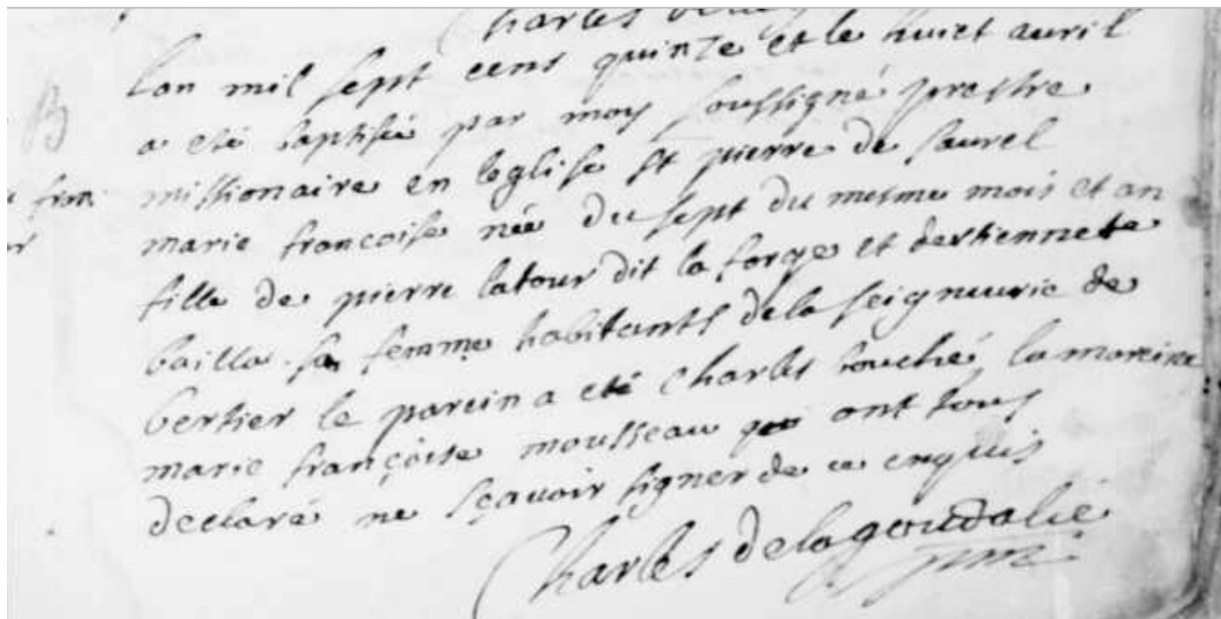 Charles
Lan mil sept cens quinze et le huict auril
B
a eté baptisée par moy soussigné prestre
missionaire en leglise st pierre de saurel
fran
marie francoise née du sept du mesme mois et an
fille de pierre latour dit la forge et destiennete
bailla sa femme habitants dela seigneurie de
bertier le parein a eté Charles bouché la mareine
marie françoise mousseau qui ont tous
declaré ne sçauoir signer de ce enquis
Charles delagoudalie